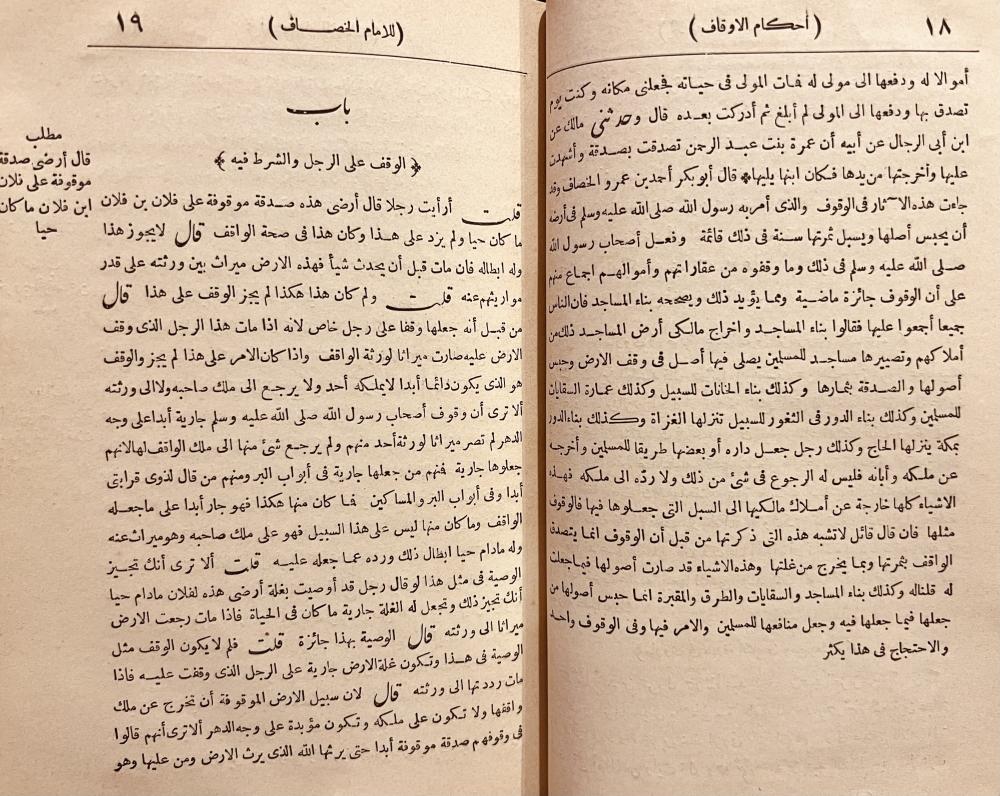 ١٨
(أحكام الاوقاف)
أموالا له ودفعها الى مولى له فمات المولى فى حياته فجعلنى مكانه وكنت يوم
تصدق بها ودفعها الى المولى لم أبلغ ثم أدركت بعده قال وحدثنى مالك عن
ابن أبى الرجال عن أبيه أن عمرة بنت عبد الرحمن تصدقت بصدقة وأشهدت
عليها وأخرجتها من يدها فكان ابنها يليها* قال أبو بكر أحمد بن عمرو الخصاف وقد
جاءت هذه الآثار فى الوقوف والذى أمر به رسول الله صلى الله عليه وسلم فى أرضه
أن يحبس أصلها ويسبل ثمرتها سنة فى ذلك قائمة وفعل أصحاب رسول الله
صلى الله عليه وسلم فى ذلك وما وقفوه من عقاراتهم وأموالهم اجماع منهم
على أن الوقوف جائزة ماضية ومما يؤيد ذلك ويصححه بناء المساجد فان الناس
جميعا أجمعوا عليها فقالوا بناء المساجد واخراج مالكى أرض المساجد ذلك من
أملاكهم وتصييرها مساجد للمسلمين يصلى فيها أصل فى وقف الارض وحبس
أصولها والصدقة بثمارها وكذلك بناء الخانات للسبيل وكذلك عمارة السقايات
للمسلمين وكذلك بناء الدور فى الثغور للسبيل تنزلها الغزاة وكذلك بناء الدور
بمكة ينزلها الحاج وكذلك رجل جعل داره أو بعضها طريقا للمسلمين وأخرجه
عن ملكه وأبانه فليس له الرجوع فى شئ من ذلك ولا رده الى ملكه فهذه
الاشياء كلها خارجة عن أملاك مالكيها الى السبل التى جعلوها فيها فالوقوف
مثلها فان قال قائل لا تشبه هذه التى ذكرتها من قبل أن الوقوف انما يتصدق
الواقف بثمرتها وبما يخرج من غلتها وهذه الاشياء قد صارت أصولها فيما جعلت
له قلنا له وكذلك بناء المساجد والسقايات والطرق والمقبرة انما حبس أصولها من
جعلها فيما جعلها فيه وجعل منافعها للمسلمين والامر فيها وفى الوقوف واحد
والاحتجاج فى هذا يكثر
(للامام الخصاف)
١٩
باب
﴿الوقف على الرجل والشرط فيه﴾
مطلب
قال أرضى صدقة
موقوفة على فلان
ابن فلان ما كان
حيا
قلت أرأيت رجلا قال أرضى هذه صدقة موقوفة على فلان بن فلان
ما كان حيا ولم يزد على هذا وكان هذا فى صحة الواقف قال لا يجوز هذا
وله ابطاله فان مات قبل أن يحدث شيأ فهذه الارض ميراث بين ورثته على قدر
مواريثهم عنه قلت ولم كان هذا هكذا لم يجز الوقف على هذا قال
من قبل أنه جعلها وقفا على رجل خاص لانه اذا مات هذا الرجل الذى وقف
الارض عليه صارت ميراثا لورثة الواقف واذا كان الامر على هذا لم يجز والوقف
هو الذى يكون دائما أبدا لا يملكه أحد ولا يرجع الى ملك صاحبه ولا الى ورثته
ألا ترى أن وقوف أصحاب رسول الله صلى الله عليه وسلم جارية أبدا على وجه
الدهر لم تصر ميراثا لورثة أحد منهم ولم يرجع شئ منها الى ملك الواقف لها لانهم
جعلوها جارية فمنهم من جعلها جارية فى أبواب البر ومنهم من قال لذوى قرابتى
أبدا وفى أبواب البر والمساكين فما كان منها هكذا فهو جار أبدا على ما جعله
الواقف وما كان منها ليس على هذا السبيل فهو على ملك صاحبه وهو ميراث عنه
وله مادام حيا ابطال ذلك ورده عما جعله عليه قلت ألا ترى أنك تجيز
الوصية فى مثل هذا لو قال رجل قد أوصيت بغلة أرضى هذه لفلان مادام حيا
أنك تجيز ذلك وتجعل له الغلة جارية ما كان فى الحياة فاذا مات رجعت الارض
ميراثا الى ورثته قال الوصية بهذا جائزة قلت فلم لا يكون الوقف مثل
الوصية فى هذا وتكون غلة الارض جارية على الرجل الذى وقفت عليه فاذا
مات رددتها الى ورثته قال لان سبيل الارض الموقوفة أن تخرج عن ملك
واقفها ولا تكون على ملكه وتكون مؤبدة على وجه الدهر ألا ترى أنهم قالوا
فى وقوفهم صدقة موقوفة أبدا حتى يرثها الله الذى يرث الارض ومن عليها وهو